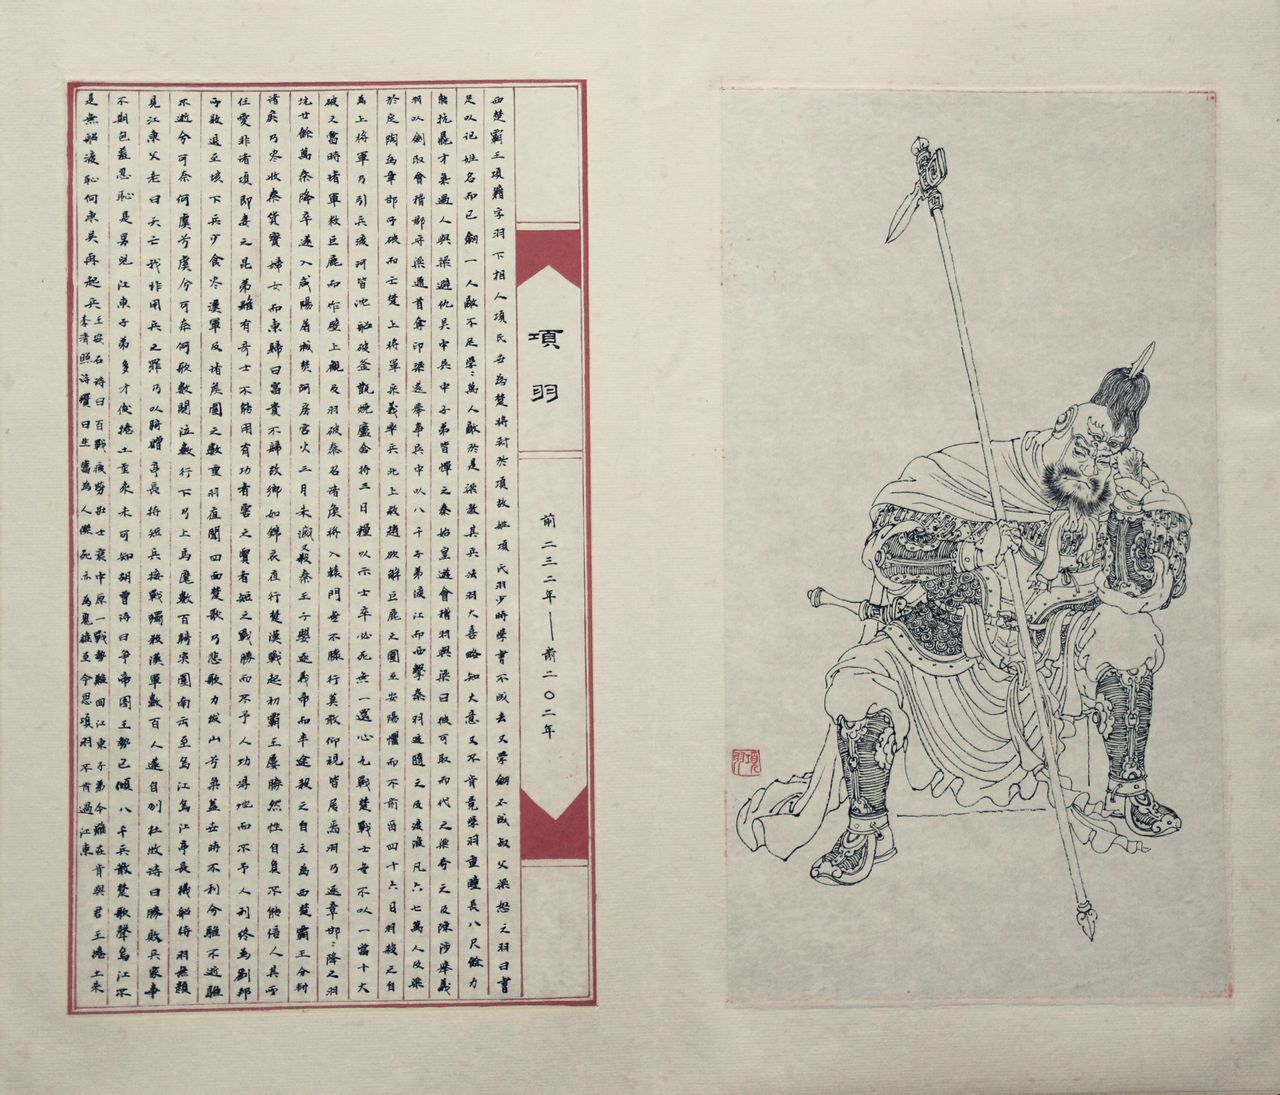 項羽
前二三二年——前二〇二年
西楚霸王項籍字羽下相人項氏世為楚將封於項故姓項氏羽少時學書不成去又學劍不成叔父梁怒之羽曰書
足以記姓名而已劍一人敵不足學:萬人敵於是梁教其兵法羽大喜略知大意又不肯竟學羽重瞳長八尺餘力
能抗鼎才氣過人與梁避仇吳中吳中子弟皆憚之秦始皇遊會稽羽與梁曰彼可取而代之梁奇之及陳涉舉義
羽以劍取會稽郡守梁首奪印梁遂舉事吳中以八千子弟渡江而西擊秦羽遂隨之及渡淮凡六七萬人及梁
於定陶為章邯破而亡楚上將軍宋義率兵北上救趙欲解巨鹿之圍至安陽懼而不前留四十六日羽殺之自
為上將軍乃引兵渡河皆沈船破釜甑燒廬舍持三日糧以示士卒必死無一還心九戰楚戰士無不以一當十大
破之當時諸軍救巨鹿而作壁上觀及羽破秦召諸侯將入轅門無不膝行莫敢仰視皆屬焉羽乃逐章邯:降之羽
坑廿餘萬秦降卒遂入咸陽屠城焚阿房宮火三月未滅又殺秦王子嬰逐義帝而半途殺之自立為西楚霸王分封
諸侯乃盡收秦貨寶婦女而東歸曰富貴不歸故鄉如錦衣夜行楚漢戰起初霸王屢勝然性自負不能信人其所
任愛非諸項即妻之昆弟雖有奇士不能用有功者害之賢者短之戰勝而不予人功得地而不予人利終為劉邦
所敗退至垓下兵少食盡漢軍及諸侯圍之數重羽夜聞四面楚歌乃悲歌力拔山兮氣蓋世時不利兮騅不逝騅
不逝兮可奈何虞兮虞兮可奈何歌數闋泣數行下乃上馬麾數百騎突圍南去至烏江烏江亭長檥船待羽無顏
見江東父老曰天亡我非用兵之罪乃以騎贈亭長持短兵接戰獨殺漢軍數百人遂自刎杜牧詩曰勝敗兵家事
不期包羞忍恥是男兒江東子弟多才俊捲土重來未可知胡曾詩曰爭帝圖王勢已傾八千兵散楚歌聲烏江不
是無船渡恥向東吳再起兵
王安石詩曰百戰疲勞壯士哀中原一戰勢難回江東子弟今雖在肯與君王捲土來
李清照詩嘆曰生當為人傑死亦為鬼雄至今思項羽不肯過江東
項羽